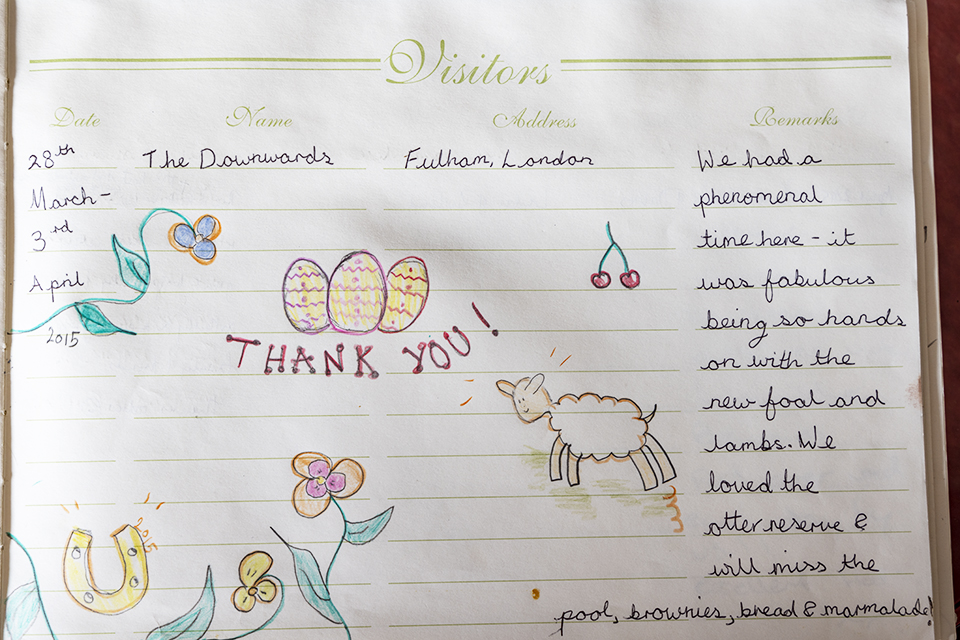 Visitors
Date Name Address Remarks
28th The Downwards Fulham, London We had a
March - phenomenal
3rd time here - it
April was fabulous
2015 being so hands
THANK YOU!
on with the
new foal and
lambs. We
loved the
otter reserve &
2015
will miss the
pool, brownies, bread & marmalade!